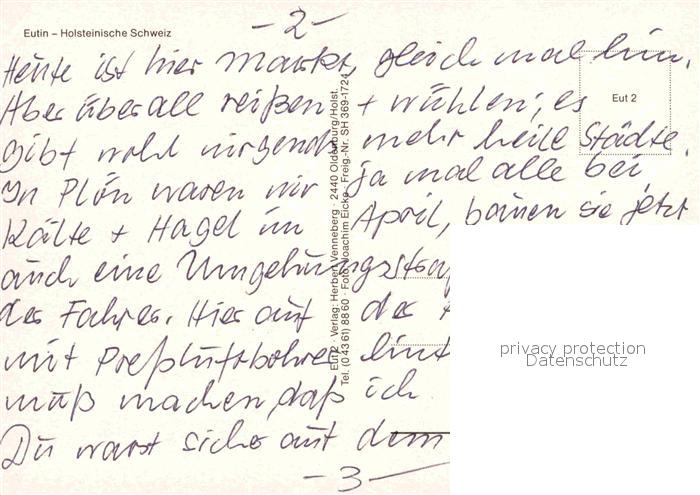 Eutin – Holsteinische Schweiz
-2-
Heute ist hier Markt, gleich mal hin.
Aber überall reißen + wühlen, es
gibt wohl nirgends mehr heile Städte.
In Plön waren wir ja mal alle bei
Kälte + Hagel im April, bauen sie jetzt
auch eine Umgehungsstraß
des Fahrer. Hier auf der
mit Preßluftbohrer
muß machen, daß ich
Du warst sicher auf dem
-3-
Eut 2
Eut 2 · Verlag: Herbert Venneberg · 2440 Oldenburg/Holst.
Tel. (0 43 61) 88 60 · Foto: Joachim Eicke · Freig.-Nr. SH 369-1724
privacy protection
Datenschutz